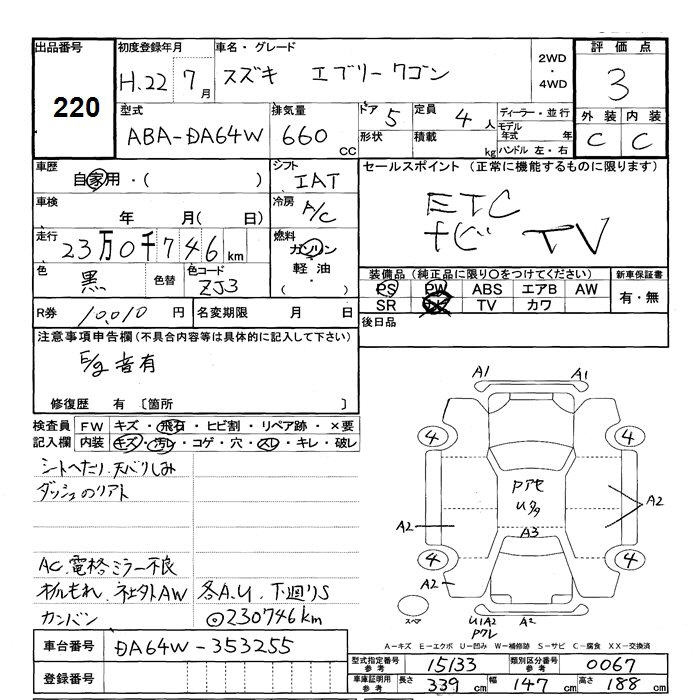 出品番号
220
初度登録年月
H.22 7月
車名・グレード
スズキ エブリーワゴン
2WD
・
4WD
評価点
3
型式
ABA-DA64W
排気量
660 CC
ドア 5
形状
定員 4人
積載 kg
ディーラー・並行
モデル年式 年
ハンドル 左・右
外装 内装
C C
車歴
自家用・( )
シフト
IAT
セールスポイント (正常に機能するものに限ります)
ETC
ナビ TV
車検 年 月( 日)
冷房
A/C
走行
23万0千746km
燃料
ガソリン
軽油・
( )
色
黒
色替
色コード
ZJ3
装備品 (純正品に限り○をつけてください)
PS PW ABS エアB AW
SR TV カワ
新車保証書
有・無
R券 10,010円
名変期限 月 日
後日品
注意事項申告欄(不具合内容等は具体的に記入して下さい)
E/g音有
修復歴 有 〔箇所 〕
検査員 FW キズ・飛石・ヒビ割・リペア跡・×要
記入欄 内装 キズ・汚レ・コゲ・穴・スレ・キレ・破レ
シートへたり.天バリしみ
ダッシュのリアト
AC.電格ミラー不良
オイルもれ.社外AW
各A.U.下廻りS
カンバン
◎230746km
A1 A1
4 4
Pアセ
U多
A2
A2
A3
4 4
A2
スペア
U1A2
Pクレ
A2
A-キズ E-エクボ U-凹み W-補修跡 S-サビ C-腐食 XX-交換済
車台番号 DA64W-353255
登録番号
型式指定番号 参考 15133
類別区分番号 参考 0067
車庫証明用 参考 長さ 339cm 幅 147cm 高さ 188cm